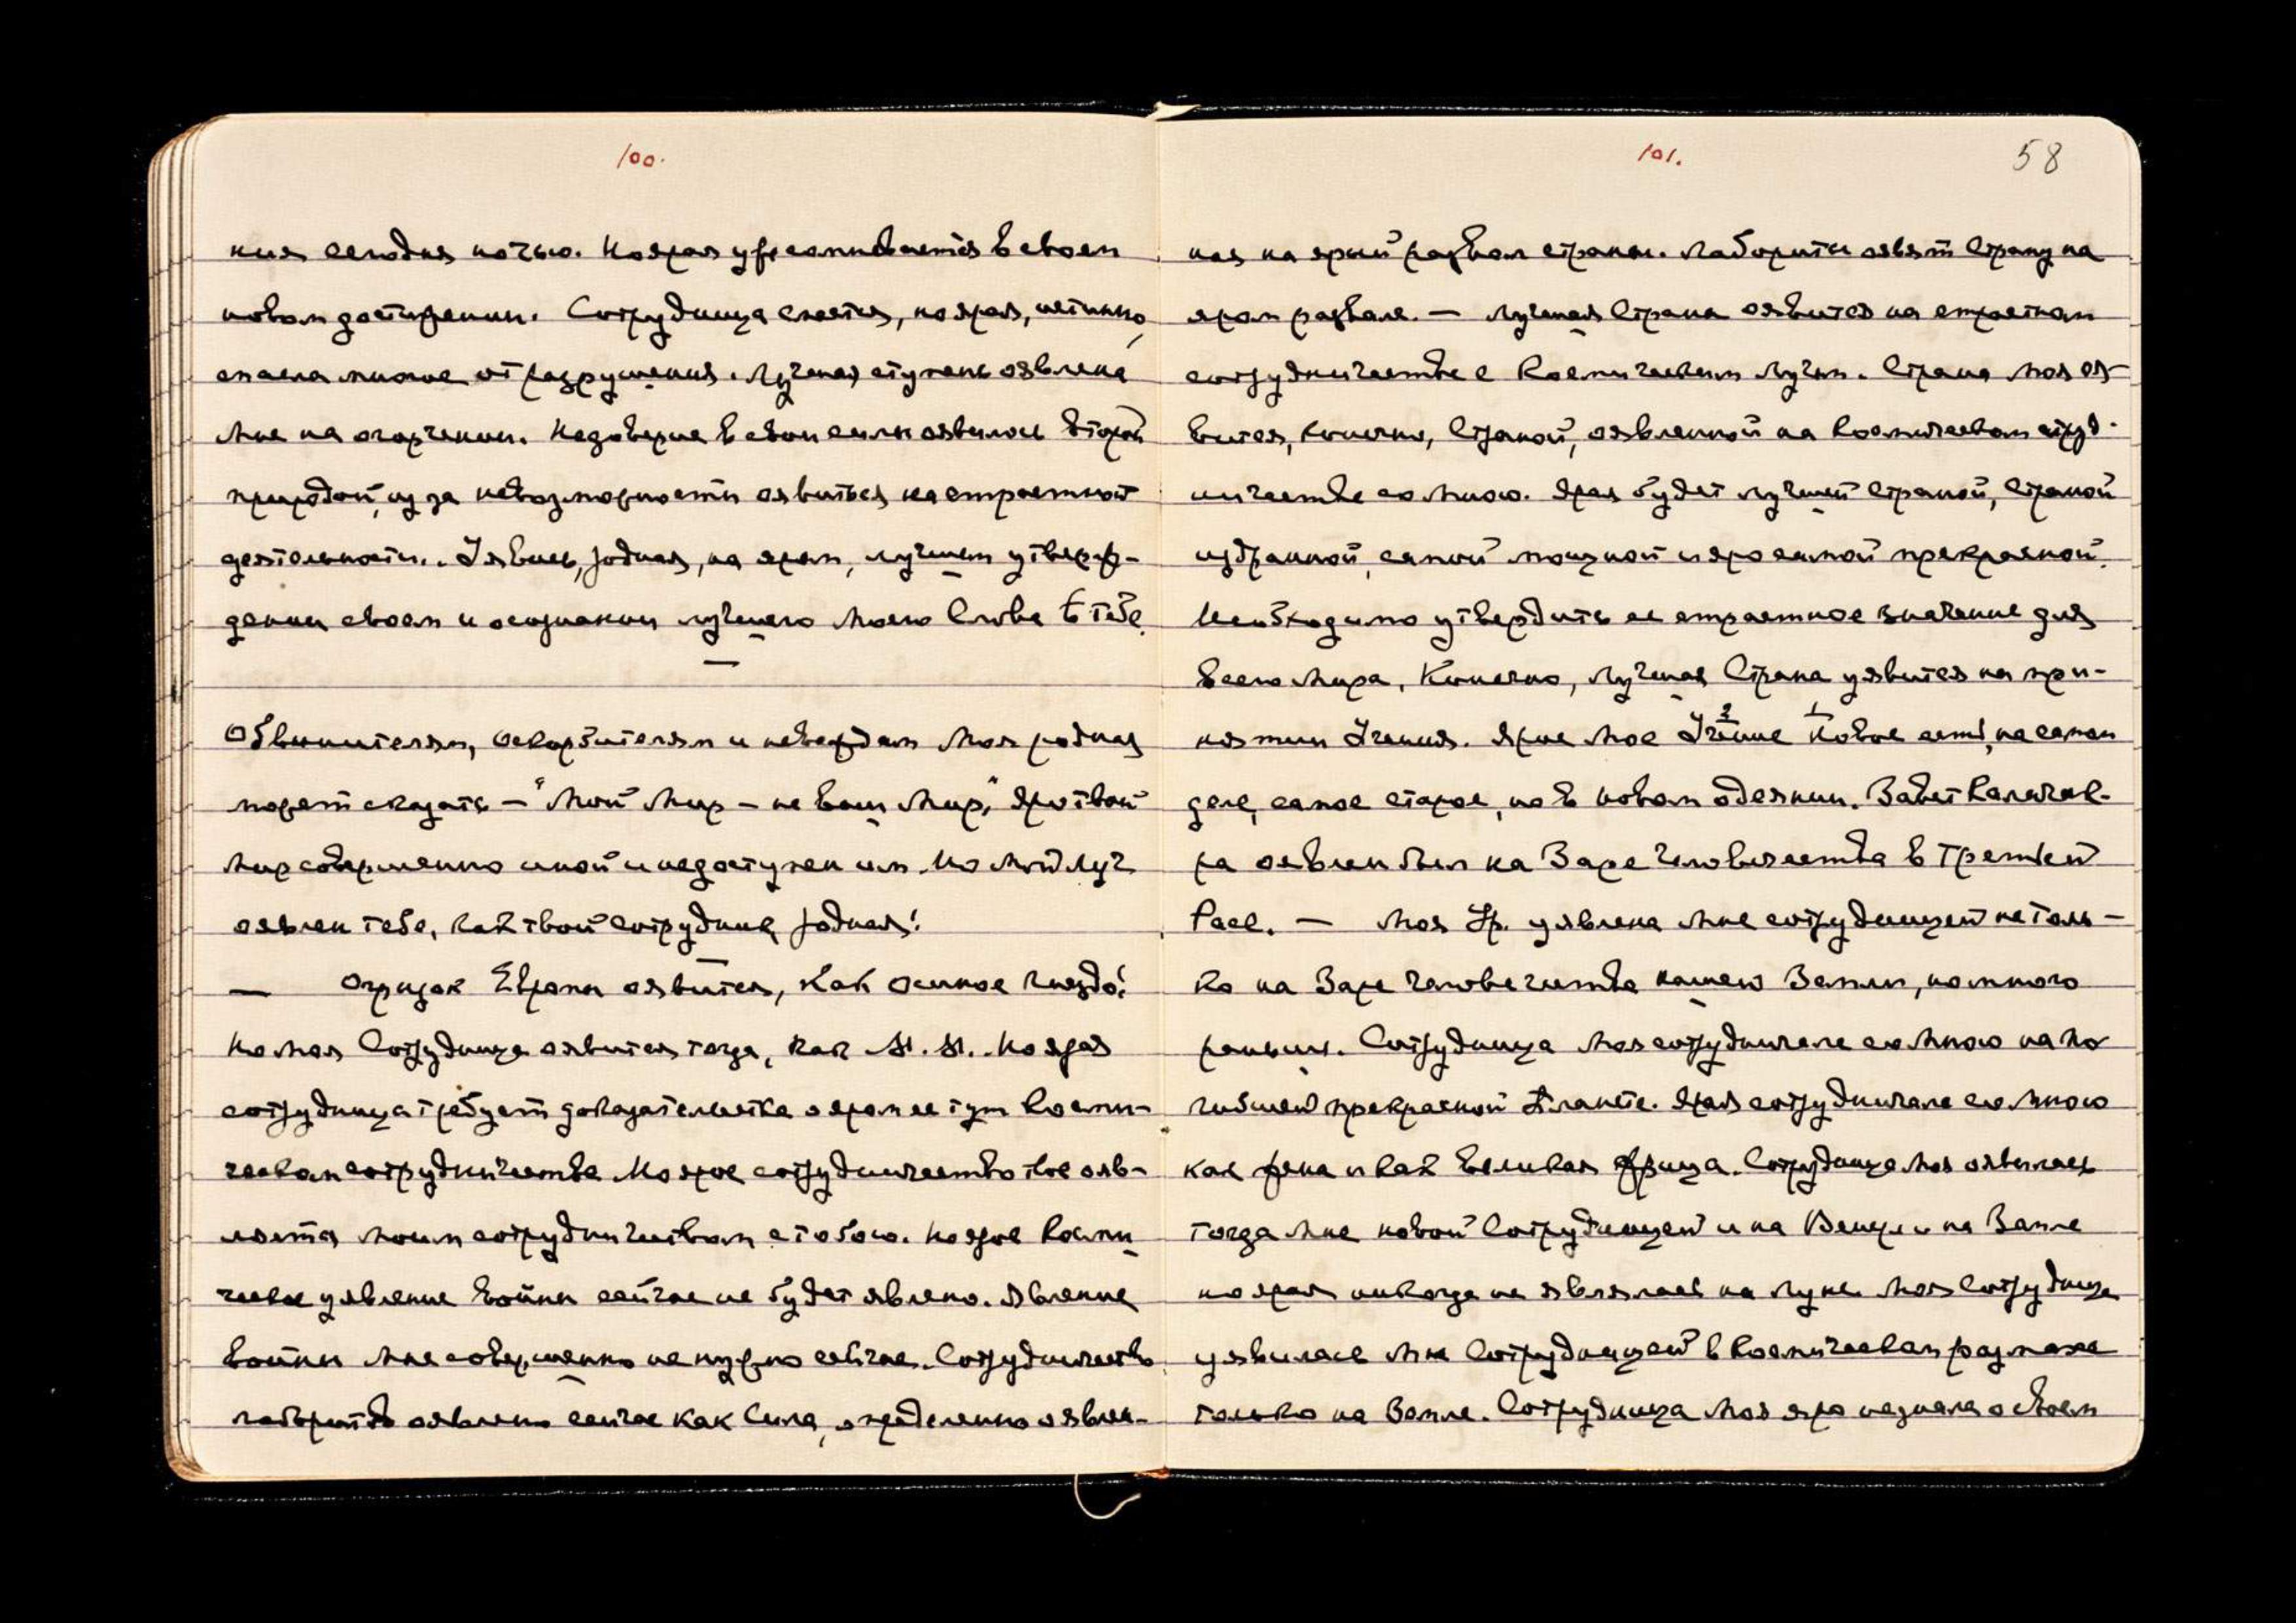 100.
ния сегодня ночью. Но ярая усомневается в своем
новом достижении. Сотрудница спается, но ярая, истинно,
спасла многое от разрушения. Лучшая ступень оявлена
Мне на огорчении. Недоверие в свои силы оявилось второй
природой, из за невозможности оявиться на страстной
деятельности. Уявись, родная, на яром, лучшем утверж-
дении своем и осознании лучшего Моего Слова к тебе.
Обвинителям, оскорбителям и невеждам Моя родная
может сказать – "Мой Мир – не ваш Мир," Яро твой
Мир совершенно иной и недоступен им. Но Мой Луч
оявлен тебе, как твой сотрудник, родная!
— Огрызок Европы оявится, как осиное гнездо!
Но Моя Сотрудница оявится тогда, как Я. Я. Но ярая
сотрудница требует доказательства о яром ее тут Косми-
ческом сотрудничестве. Но ярое сотрудничество твое явл-
яется Моим сотрудничеством с тобою. Но ярое Косми-
ческое уявление войны сейчас не будет явлено. Явление
войны Мне совершенно не нужно сейчас. Сотрудничество
лабористов оявлено сейчас как Сила, определенно оявлен-
101.
58
ная на ярый развал страны. Лабористы оявят Страну на
яром развале. — Лучшая Страна оявится на страстном
сотрудничестве с Космическим Лучом. Страна Моя оя-
вится, конечно, Страной, оявленной на Космическом струд-
ничестве со Мною. Ярая будет лучшей Страной, Страной
избранной, самой мощной и яро самой прекрасной.
Необходимо утвердить ее страстное значение для
всего Мира, Конечно, лучшая Страна уявится на при-
нятии Учения. Ярое Мое Учение Новое есть, на самом
деле, самое старое, но в новом одеянии. Завет Калачак-
ра оявлен был на Заре Человечества в Третьей
Расе. — Моя Ур. уявлена Мне сотрудницей не толь-
ко на Заре человечества нашей Земли, но много
раньше. Сотрудница Моя сотрудничала со Мною на по-
гибшей прекрасной Планете. Ярая сотрудничала со Мною
как жена и как великая жрица. Сотрудница Моя оявилась
тогда Мне новой Сотрудницей и на Венере и на Земле
но ярая никогда не являлась на Луне. Моя Сотрудница
уявилась Мне Сотрудницей в Космическом размахе
только на Земле. Сотрудница Моя яро не знала о своем